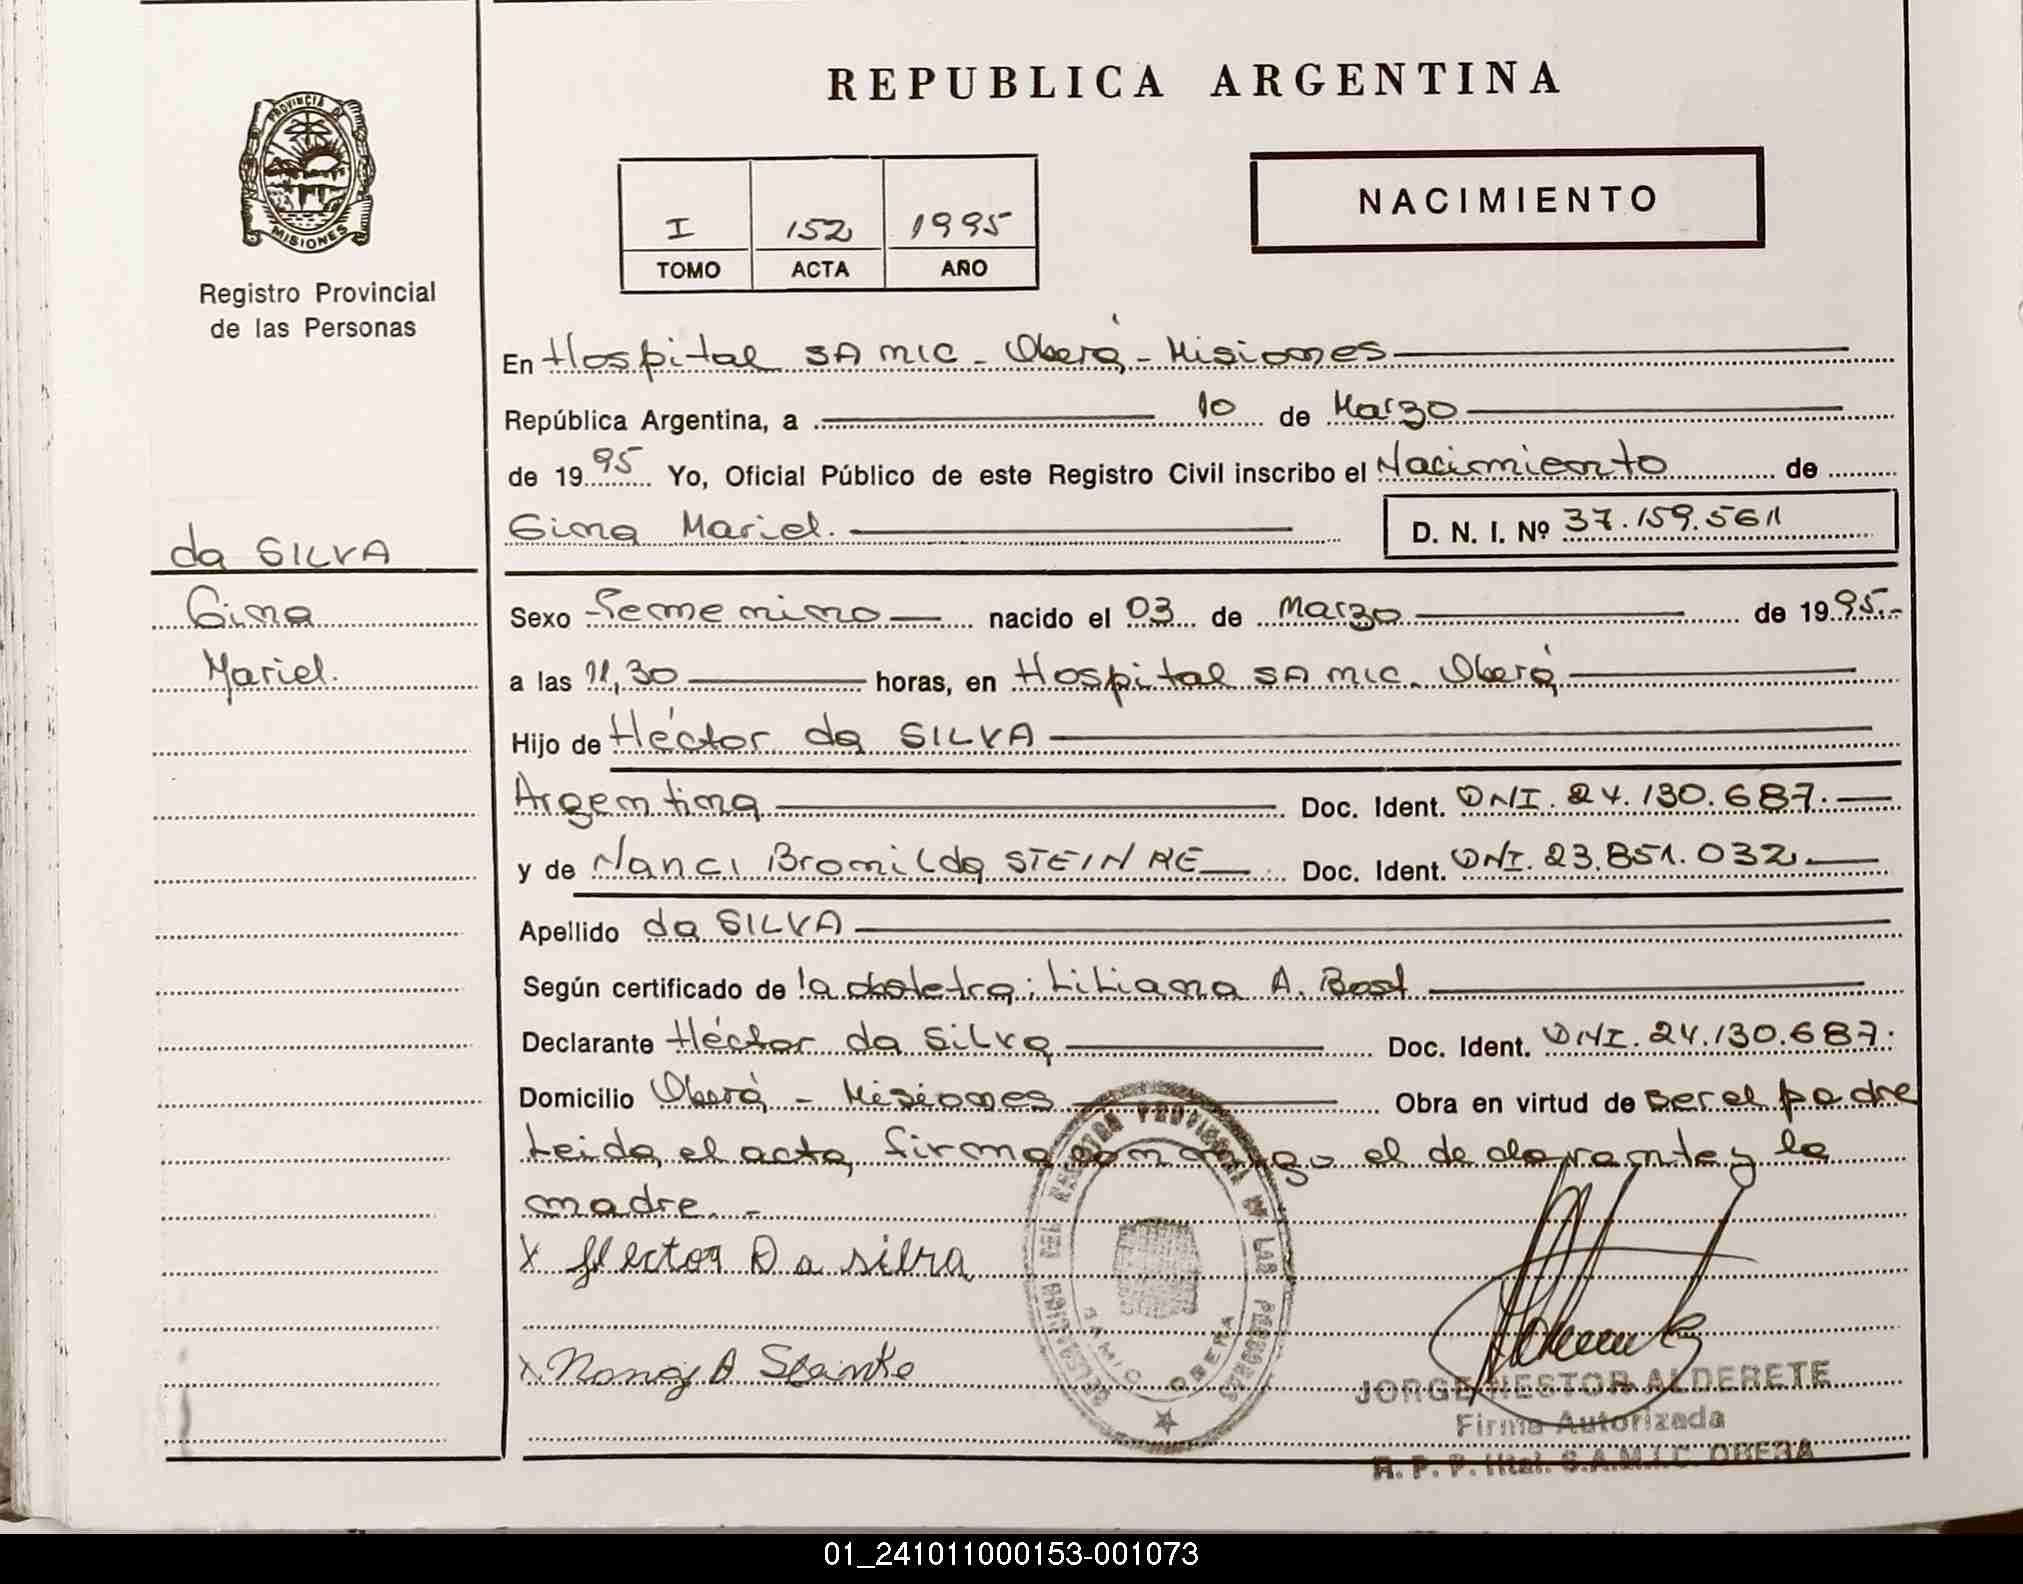 REPUBLICA ARGENTINA
PROVINCIA DE
MISIONES
Registro Provincial
de las Personas
I 152 1995
TOMO ACTA AÑO
NACIMIENTO
En Hospital SAMIC - Oberá - Misiones
República Argentina, a 10 de Marzo
de 1995 Yo, Oficial Público de este Registro Civil inscribo el Nacimiento de
Gina Mariel. D. N. I. Nº 37.159.561
da SILVA
Gina
Mariel.
Sexo Femenino nacido el 03 de Marzo de 1995.-
a las 11,30 horas, en Hospital SAMIC. Oberá
Hijo de Héctor da SILVA
Argentina Doc. Ident. DNI. 24.130.687.
y de Nanci Bronilda STEINKE Doc. Ident. DNI. 23.851.032.
Apellido da SILVA
Según certificado de la obstetra: Liliana A. Bost
Declarante Héctor da Silva Doc. Ident. DNI. 24.130.687.
Domicilio Oberá - Misiones Obra en virtud de ser el padre
Leida el acta, firma conmigo el declarante y la
madre. -
X Hector Da silva
X Nancy B Steinke
SAMIC OBERA
JORGE NESTOR ALDERETE
Firma Autorizada
R. P. P. Htal. S.A.M.I.C. OBERA
01_241011000153-001073